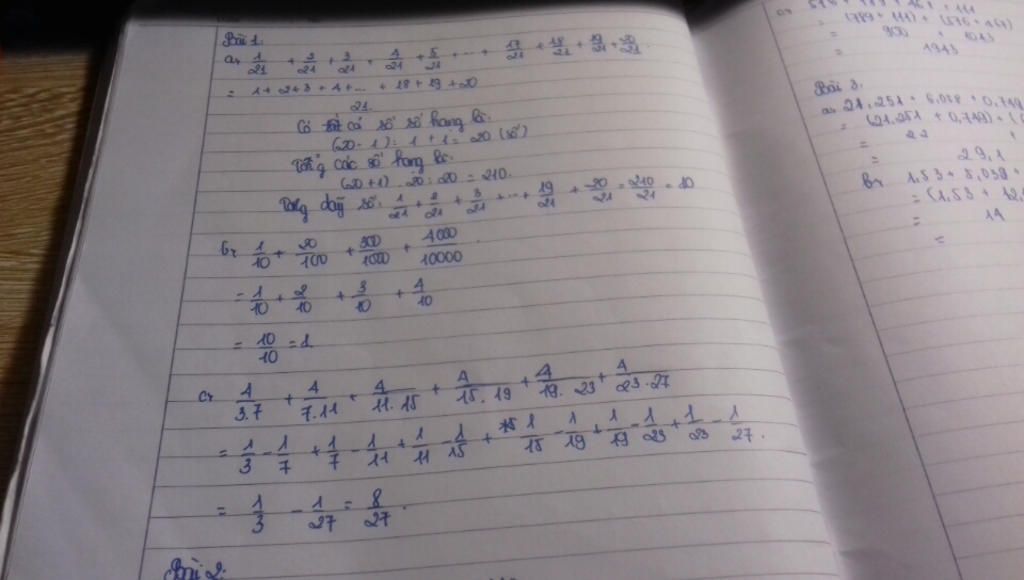 Bài 1.
a, 1/21 + 2/21 + 3/21 + 4/21 + 5/21 + ... + 17/21 + 18/21 + 19/21 + 20/21.
= 1+2+3+4+... +18+19+20 / 21.
Có tất cả số số hạng là:
(20-1): 1 + 1 = 20 (số)
Tổng các số hạng là:
(20+1) . 20 : 20 = 210.
Tổng dãy số: 1/21 + 2/21 + 3/21 + ... + 19/21 + 20/21 = 210/21 = 10
b, 1/10 + 20/100 + 300/1000 + 4000/10000.
= 1/10 + 2/10 + 3/10 + 4/10
= 10/10 = 1.
c, 4/3.7 + 4/7.11 + 4/11.15 + 4/15.19 + 4/19.23 + 4/23.27
= 1/3 - 1/7 + 1/7 - 1/11 + 1/11 - 1/15 + 1/15 - 1/19 + 1/19 - 1/23 + 1/23 - 1/27.
= 1/3 - 1/27 = 8/27.
Bài 2:
= (789 + 111) + (576 + 467)
= 900 + 1043
= 1943
Bài 3.
a, 21,251 + 6,058 + 0,749
= (21,251 + 0,749) + (
= 22 +
= 29,1
b, 1,53 + 5,039 +
= (1,53 + 12,
= 14
=